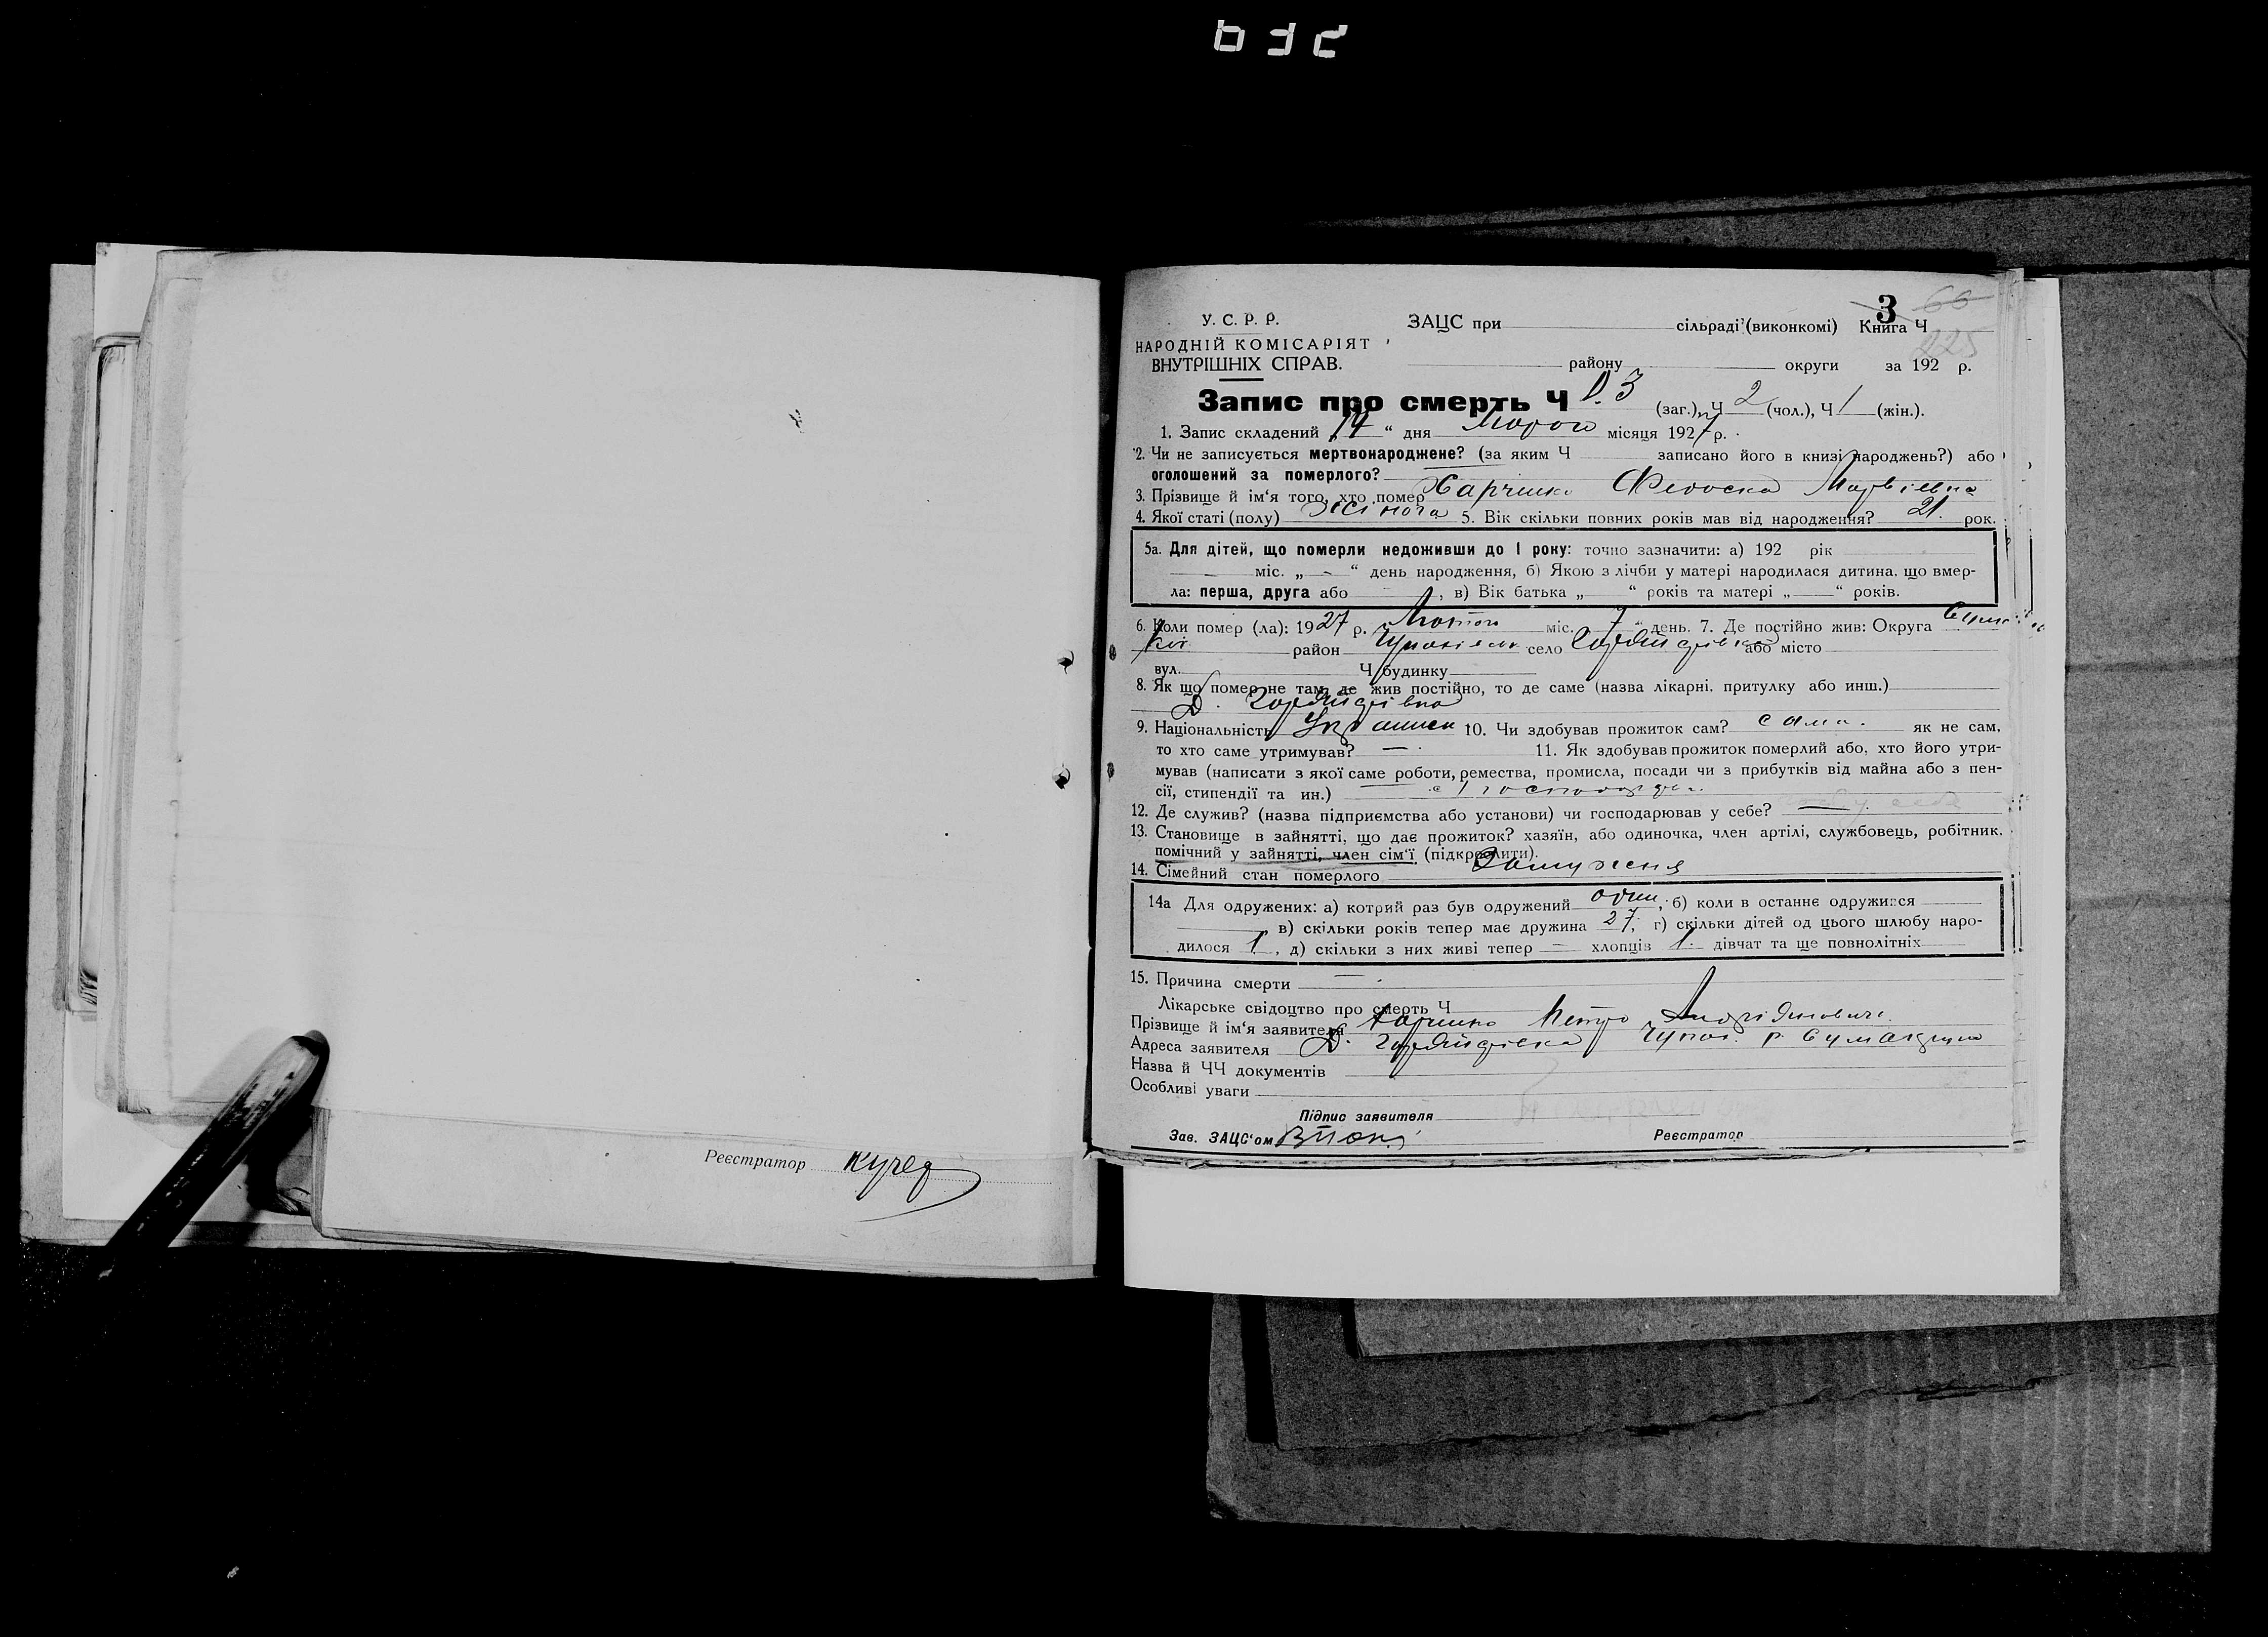 Реєстратор Кучер
3 66
225
У. С. Р. Р. ЗАЦС при сільраді (виконкомі) Книга Ч
НАРОДНІЙ КОМІСАРІЯТ
ВНУТРІШНІХ СПРАВ. району округи за 192 р.
Запис про смерть Ч 3 (заг.), Ч 2 (чол.), Ч 1 (жін.).
1. Запис складений „14“ дня місяця 1927 р.
2. Чи не записується мертвонароджене? (за яким Ч записано його в книзі народжень?) або
оголошений за померлого?
3. Прізвище й ім‘я того, хто помер Харченко Матвіевна
4. Якої статі (полу) Жіноча 5. Вік скільки повних років мав від народження? 21 рок.
5а. Для дітей, що померли недоживши до 1 року: точно зазначити: а) 192 рік
міс. „ — “ день народження, б) Якою з лічби у матері народилася дитина, що вмер-
ла: перша, друга або , в) Вік батька „ — “ років та матері „ — “ років.
6. Коли помер (ла): 1927 р. Лютого міс. 7 “ день. 7. Де постійно жив: Округа
район село або місто
вул. Ч будинку
8. Як що помер не там, де жив постійно, то де саме (назва лікарні, притулку або инш.)
9. Національність 10. Чи здобував прожиток сам? сама. як не сам,
то хто саме утримував? — 11. Як здобував прожиток померлий або, хто його утри-
мував (написати з якої саме роботи, ремества, промисла, посади чи з прибутків від майна або з пен-
сії, стипендії та ин.)
12. Де служив? (назва підприємства або установи) чи господарював у себе? —
13. Становище в зайнятті, що дає прожиток? хазяїн, або одиночка, член артілі, службовець, робітник,
помічний у зайнятті, член сім‘ї (підкреслити).
14. Сімейний стан померлого Замужня
14а Для одружених: а) котрий раз був одружений один, б) коли в останнє одружився
в) скільки років тепер має дружина 27, г) скільки дітей од цього шлюбу наро-
дилося 1, д) скільки з них живі тепер — хлопців 1. дівчат та ще повнолітніх
15. Причина смерти —
Лікарське свідоцтво про смерть Ч
Прізвище й ім‘я заявителя Харченко Петро
Адреса заявителя
Назва й ЧЧ документів
Особливі уваги
Підпис заявителя
Зав. ЗАЦС‘ом Реєстратор